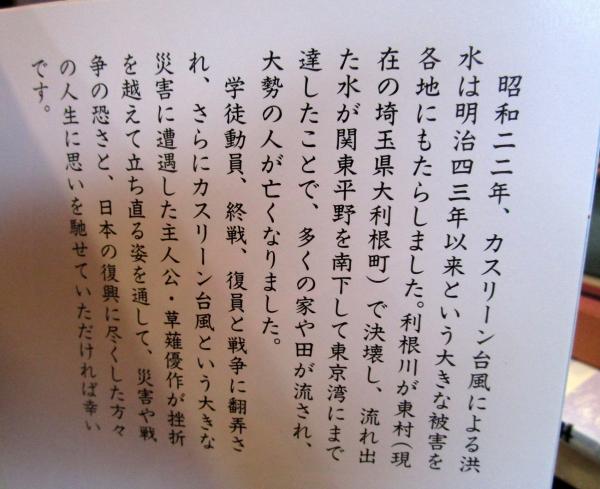 昭和二二年、カスリーン台風による洪
水は明治四三年以来という大きな被害を
各地にもたらしました。利根川が東村（現
在の埼玉県大利根町）で決壊し、流れ出
た水が関東平野を南下して東京湾にまで
達したことで、多くの家や田が流され、
大勢の人が亡くなりました。
学徒動員、終戦、復員と戦争に翻弄さ
れ、さらにカスリーン台風という大きな
災害に遭遇した主人公・草薙優作が挫折
を越えて立ち直る姿を通して、災害や戦
争の恐さと、日本の復興に尽くした方々
の人生に思いを馳せていただければ幸い
です。